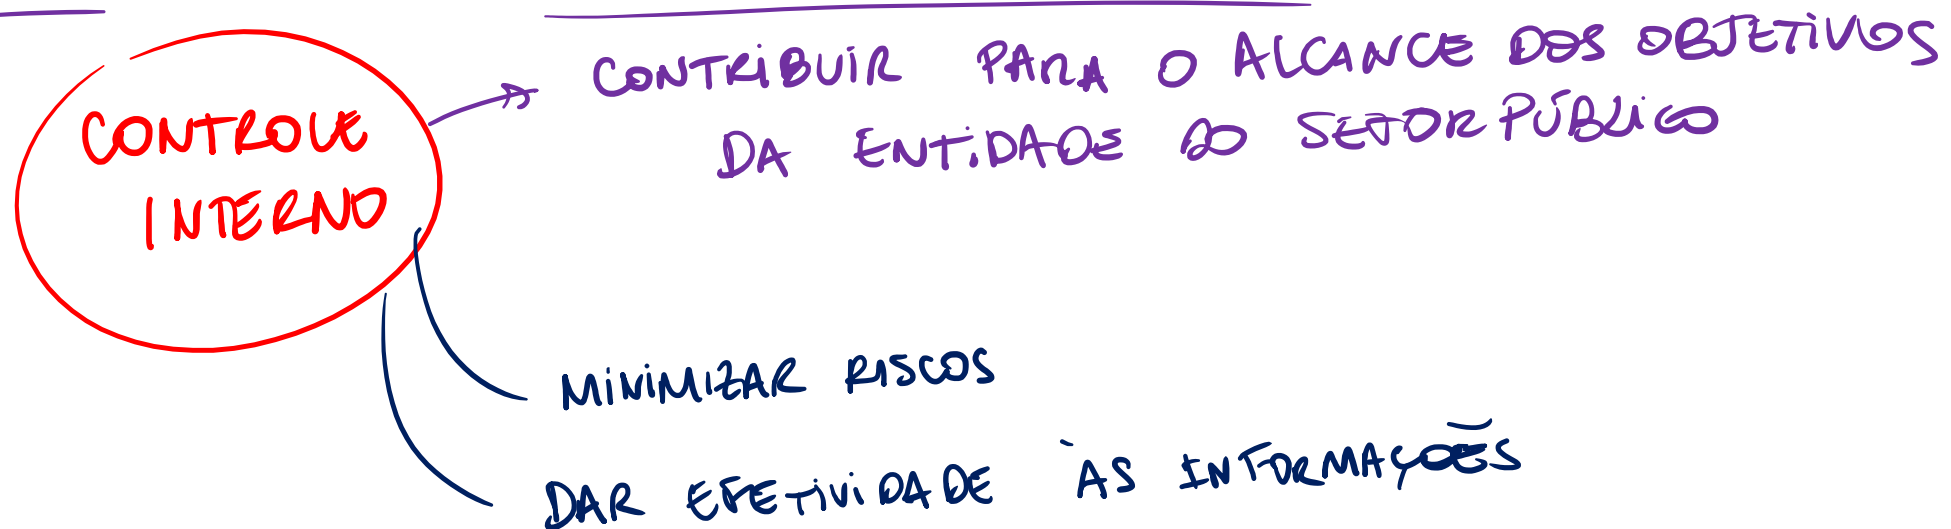 CONTROLE
INTERNO
CONTRiBUiR PARA O ALCANCE DOS OBJETiVOS
DA ENTiDADE DO SETOR PÚBLiCO
MiNiMIZAR RISCOS
DAR EFETiViDADE ÀS INFORMAÇÕES